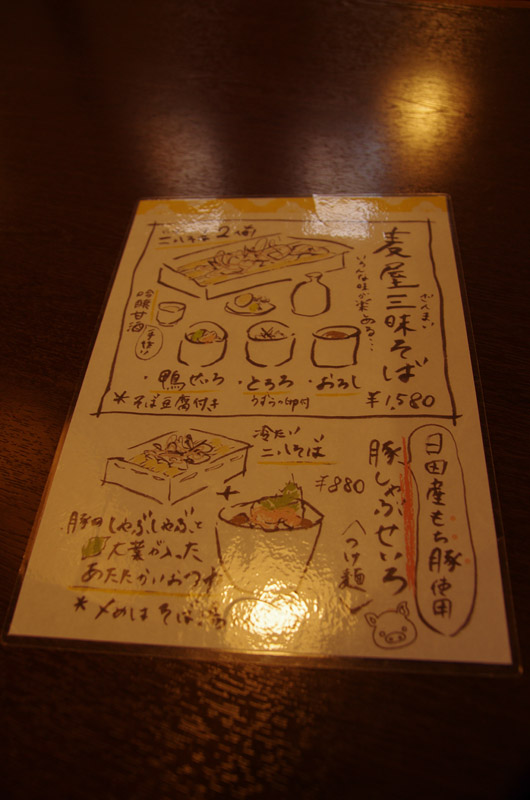 麦屋三昧そば
ざんまい
いろんな味が楽しめる…
二八そば 2人前
吟醸甘酒
手造り
・鴨せいろ ・とろろ ・おろし
うずらの卵付
*そば豆腐付き
¥1,580
日田産もち豚使用
豚しゃぶせいろ
つけ麺
冷たい
二八そば
¥880
+
豚のしゃぶしゃぶと
大葉が入った
あたたかいおつゆ
*〆めはそば湯